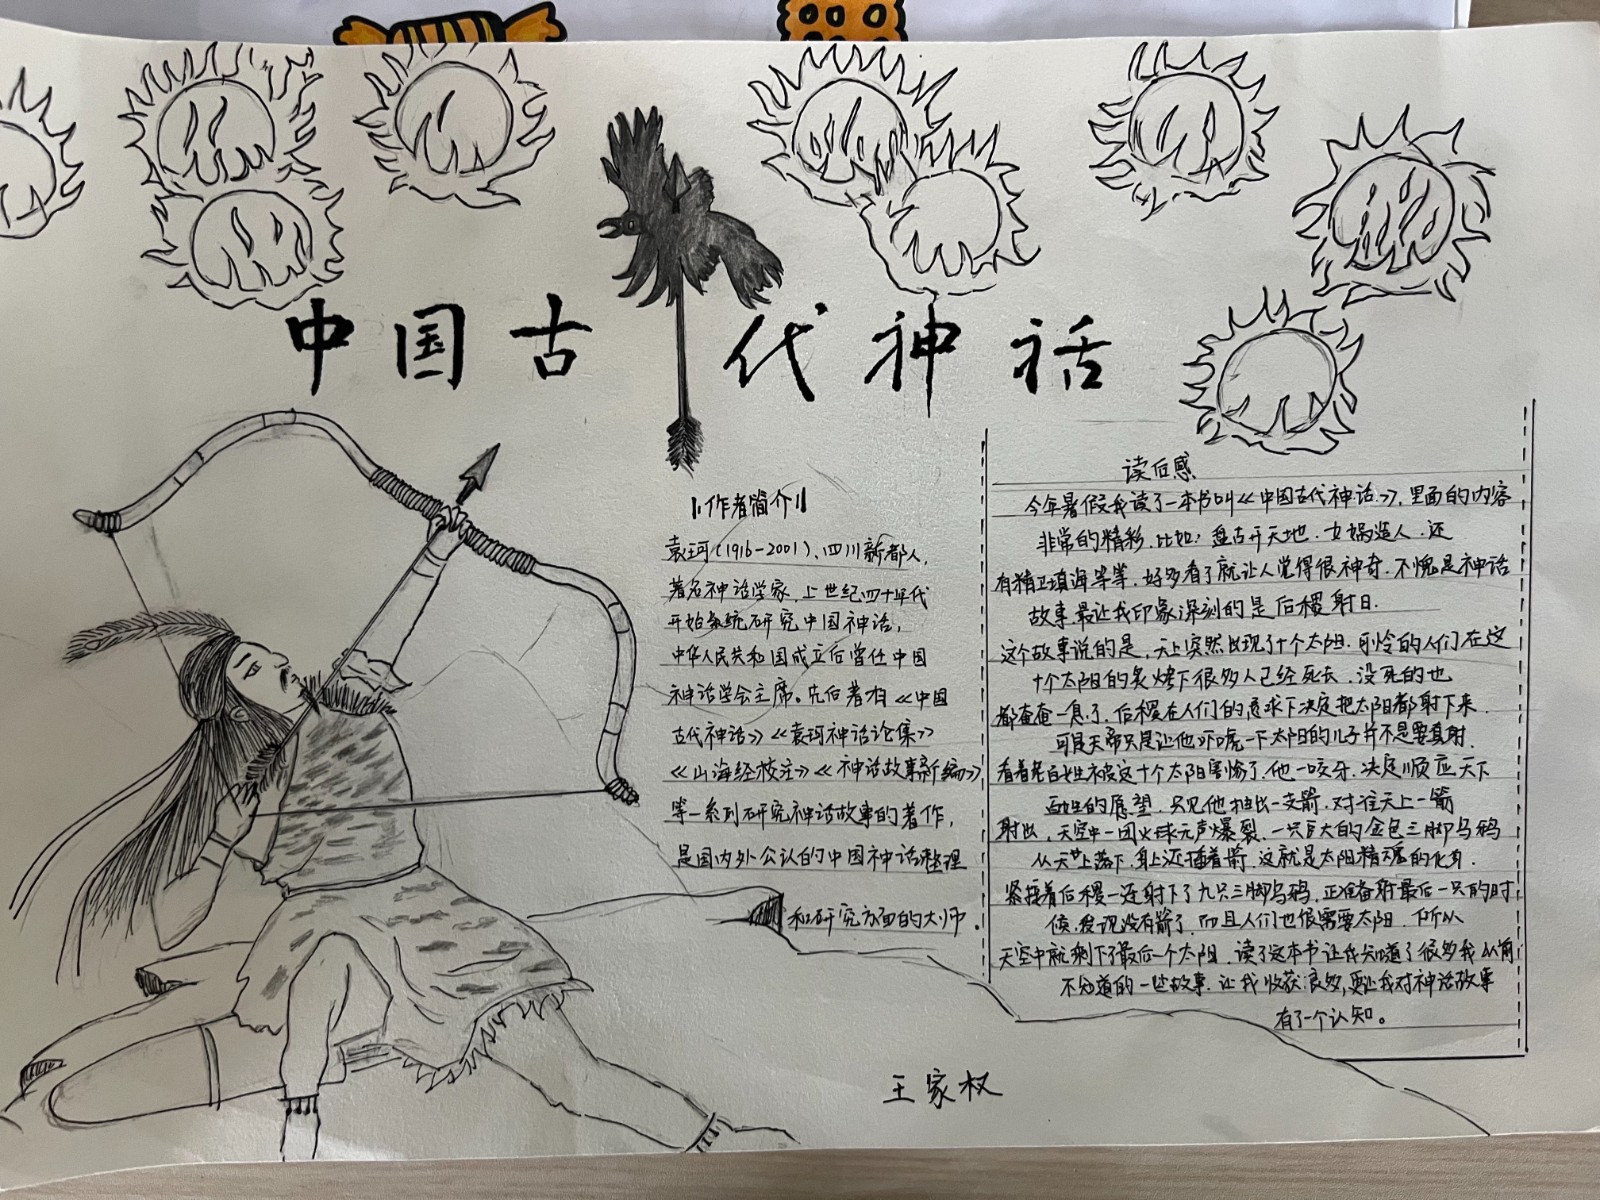 中国古代神话
作者简介
袁珂(1916-2001)、四川新都人,
著名神话学家、上世纪四十年代
开始系统研究中国神话,
中华人民共和国成立后曾任中国
神话学会主席。先后著有《中国
古代神话》《袁珂神话论集》
《山海经校注》《神话故事新编》
等一系列研究神话故事的著作,
是国内外公认的中国神话整理
和研究方面的大师。
读后感
今年暑假我读了一本书叫《中国古代神话》,里面的内容
非常的精彩,比如:盘古开天地、女娲造人、还
有精卫填海等等,好多看了就让人觉得很神奇,不愧是神话
故事,最让我印象深刻的是后稷射日.
这个故事说的是,天上突然出现了十个太阳,可怜的人们在这
十个太阳的炙烤下很多人已经死去,没死的也
都奄奄一息了,后稷在人们的恳求下决定把太阳都射下来.
可是天帝只是让他吓唬一下太阳的儿子并不是要真射.
看着老百姓被这十个太阳害惨了,他一咬牙,决定顺应天下
百姓的愿望,只见他抽出一支箭,对准天上一箭
射出,天空中一团火球无声爆裂,一只巨大的金色三脚乌鸦
从天上落下,身上还插着箭,这就是太阳精魂的化身.
紧接着后稷一连射下了九只三脚乌鸦,正准备射最后一只的时
候,发现没有箭了,而且人们也很需要太阳,所以
天空中就剩下了最后一个太阳,读了这本书让我知道了很多我以前
不知道的一些故事,让我收获很多,更让我对神话故事
有了一个认知。
王家权